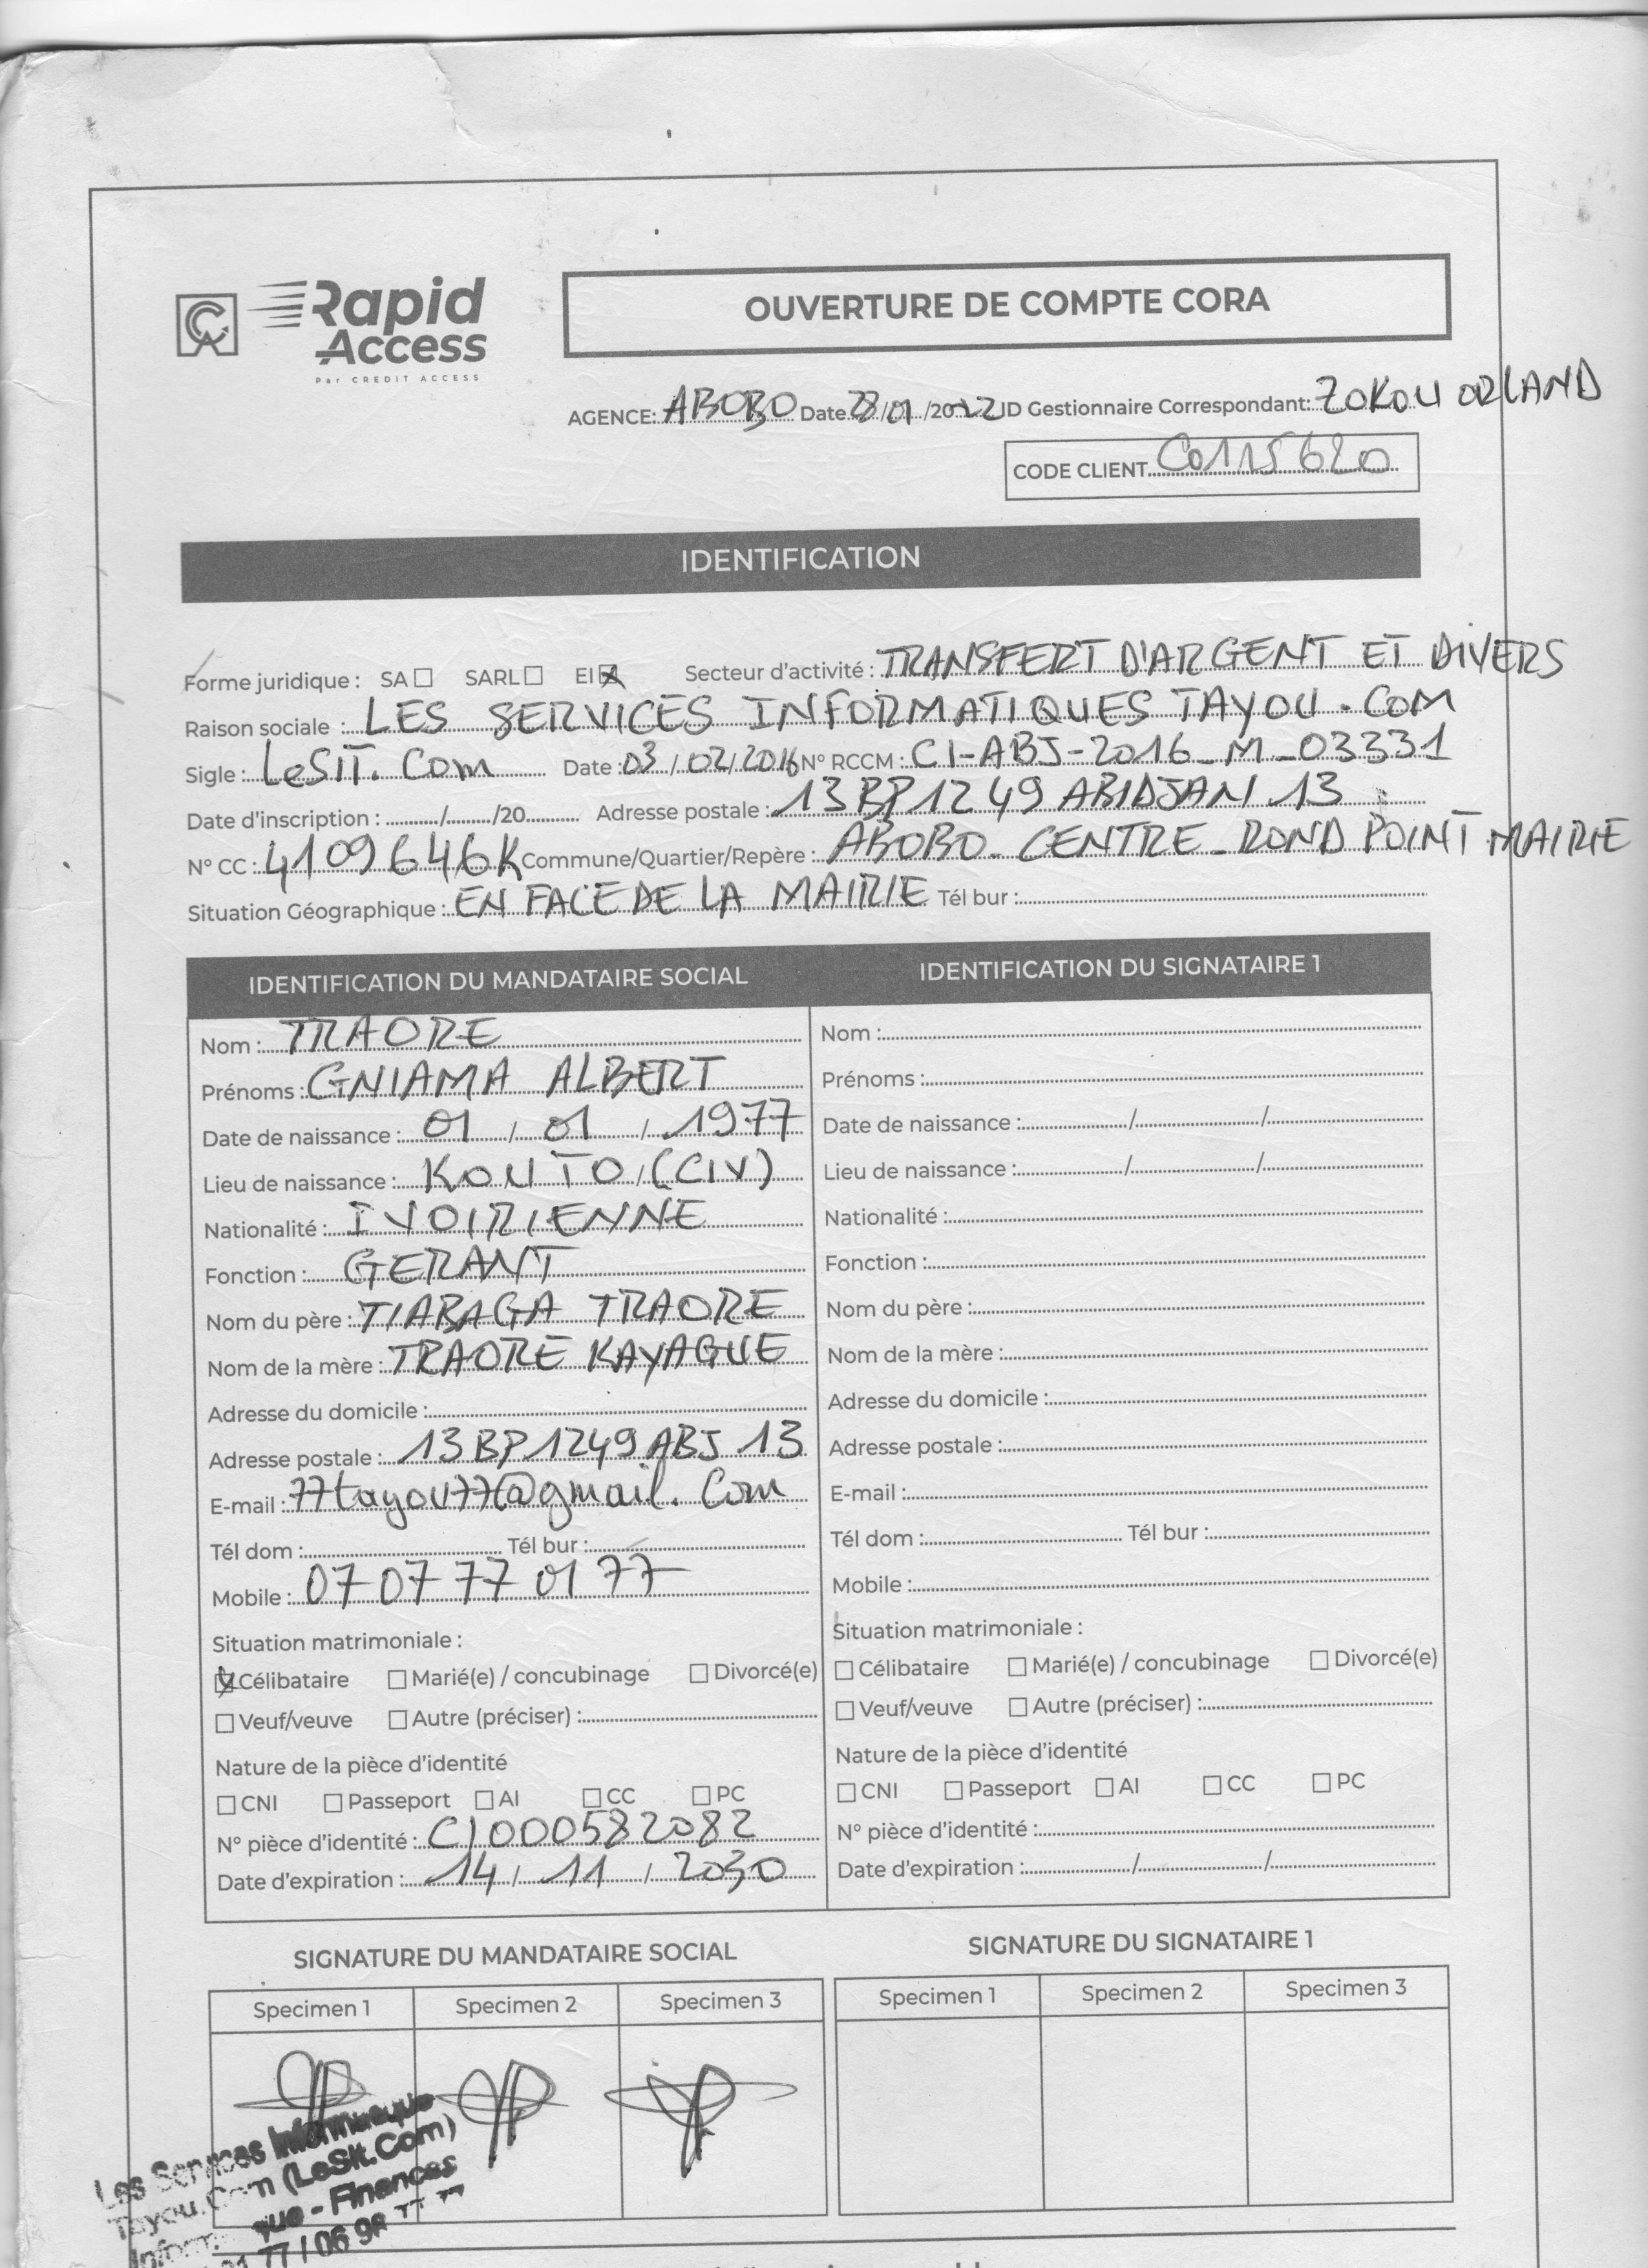 Rapid
Access
Par CREDIT ACCESS
OUVERTURE DE COMPTE CORA
AGENCE: ABOBO Date 28/01/2022 ID Gestionnaire Correspondant: ZOKOU ORLAND
CODE CLIENT C0115620
IDENTIFICATION
Forme juridique : SA ☐ SARL ☐ EI ☒ Secteur d'activité : TRANSFERT D'ARGENT ET DIVERS
Raison sociale : LES SERVICES INFORMATIQUES TAYOU.COM
Sigle : LeSIT.Com Date : 03/02/2016 N° RCCM : CI-ABJ-2016-M-03331
Date d'inscription : ........./........./20.......... Adresse postale : 13 BP 1249 ABIDJAN 13
N° CC : 4109646K Commune/Quartier/Repère : ABOBO-CENTRE-ROND POINT MAIRIE
Situation Géographique : EN FACE DE LA MAIRIE Tél bur :
IDENTIFICATION DU MANDATAIRE SOCIAL
Nom : TRAORE
Prénoms : GNIAMA ALBERT
Date de naissance : 01 / 01 / 1977
Lieu de naissance : KOUTO (CIV)
Nationalité : IVOIRIENNE
Fonction : GERANT
Nom du père : TIABAGA TRAORE
Nom de la mère : TRAORE KAYAGUE
Adresse du domicile :
Adresse postale : 13 BP 1249 ABJ 13
E-mail : 77tayou77@gmail.com
Tél dom : Tél bur :
Mobile : 07 07 77 01 77
Situation matrimoniale :
☒ Célibataire ☐ Marié(e) / concubinage ☐ Divorcé(e)
☐ Veuf/veuve ☐ Autre (préciser) :
Nature de la pièce d'identité
☐ CNI ☐ Passeport ☐ AI ☐ CC ☐ PC
N° pièce d'identité : CI000582082
Date d'expiration : 14 / 11 / 2030
IDENTIFICATION DU SIGNATAIRE 1
Nom :
Prénoms :
Date de naissance : / /
Lieu de naissance : / /
Nationalité :
Fonction :
Nom du père :
Nom de la mère :
Adresse du domicile :
Adresse postale :
E-mail :
Tél dom : Tél bur :
Mobile :
Situation matrimoniale :
☐ Célibataire ☐ Marié(e) / concubinage ☐ Divorcé(e)
☐ Veuf/veuve ☐ Autre (préciser) :
Nature de la pièce d'identité
☐ CNI ☐ Passeport ☐ AI ☐ CC ☐ PC
N° pièce d'identité :
Date d'expiration : / /
SIGNATURE DU MANDATAIRE SOCIAL
Specimen 1 Specimen 2 Specimen 3
SIGNATURE DU SIGNATAIRE 1
Specimen 1 Specimen 2 Specimen 3
Les Services Informatique
Tayou.Com (LeSit.Com)
- Finances
77 / 06 98